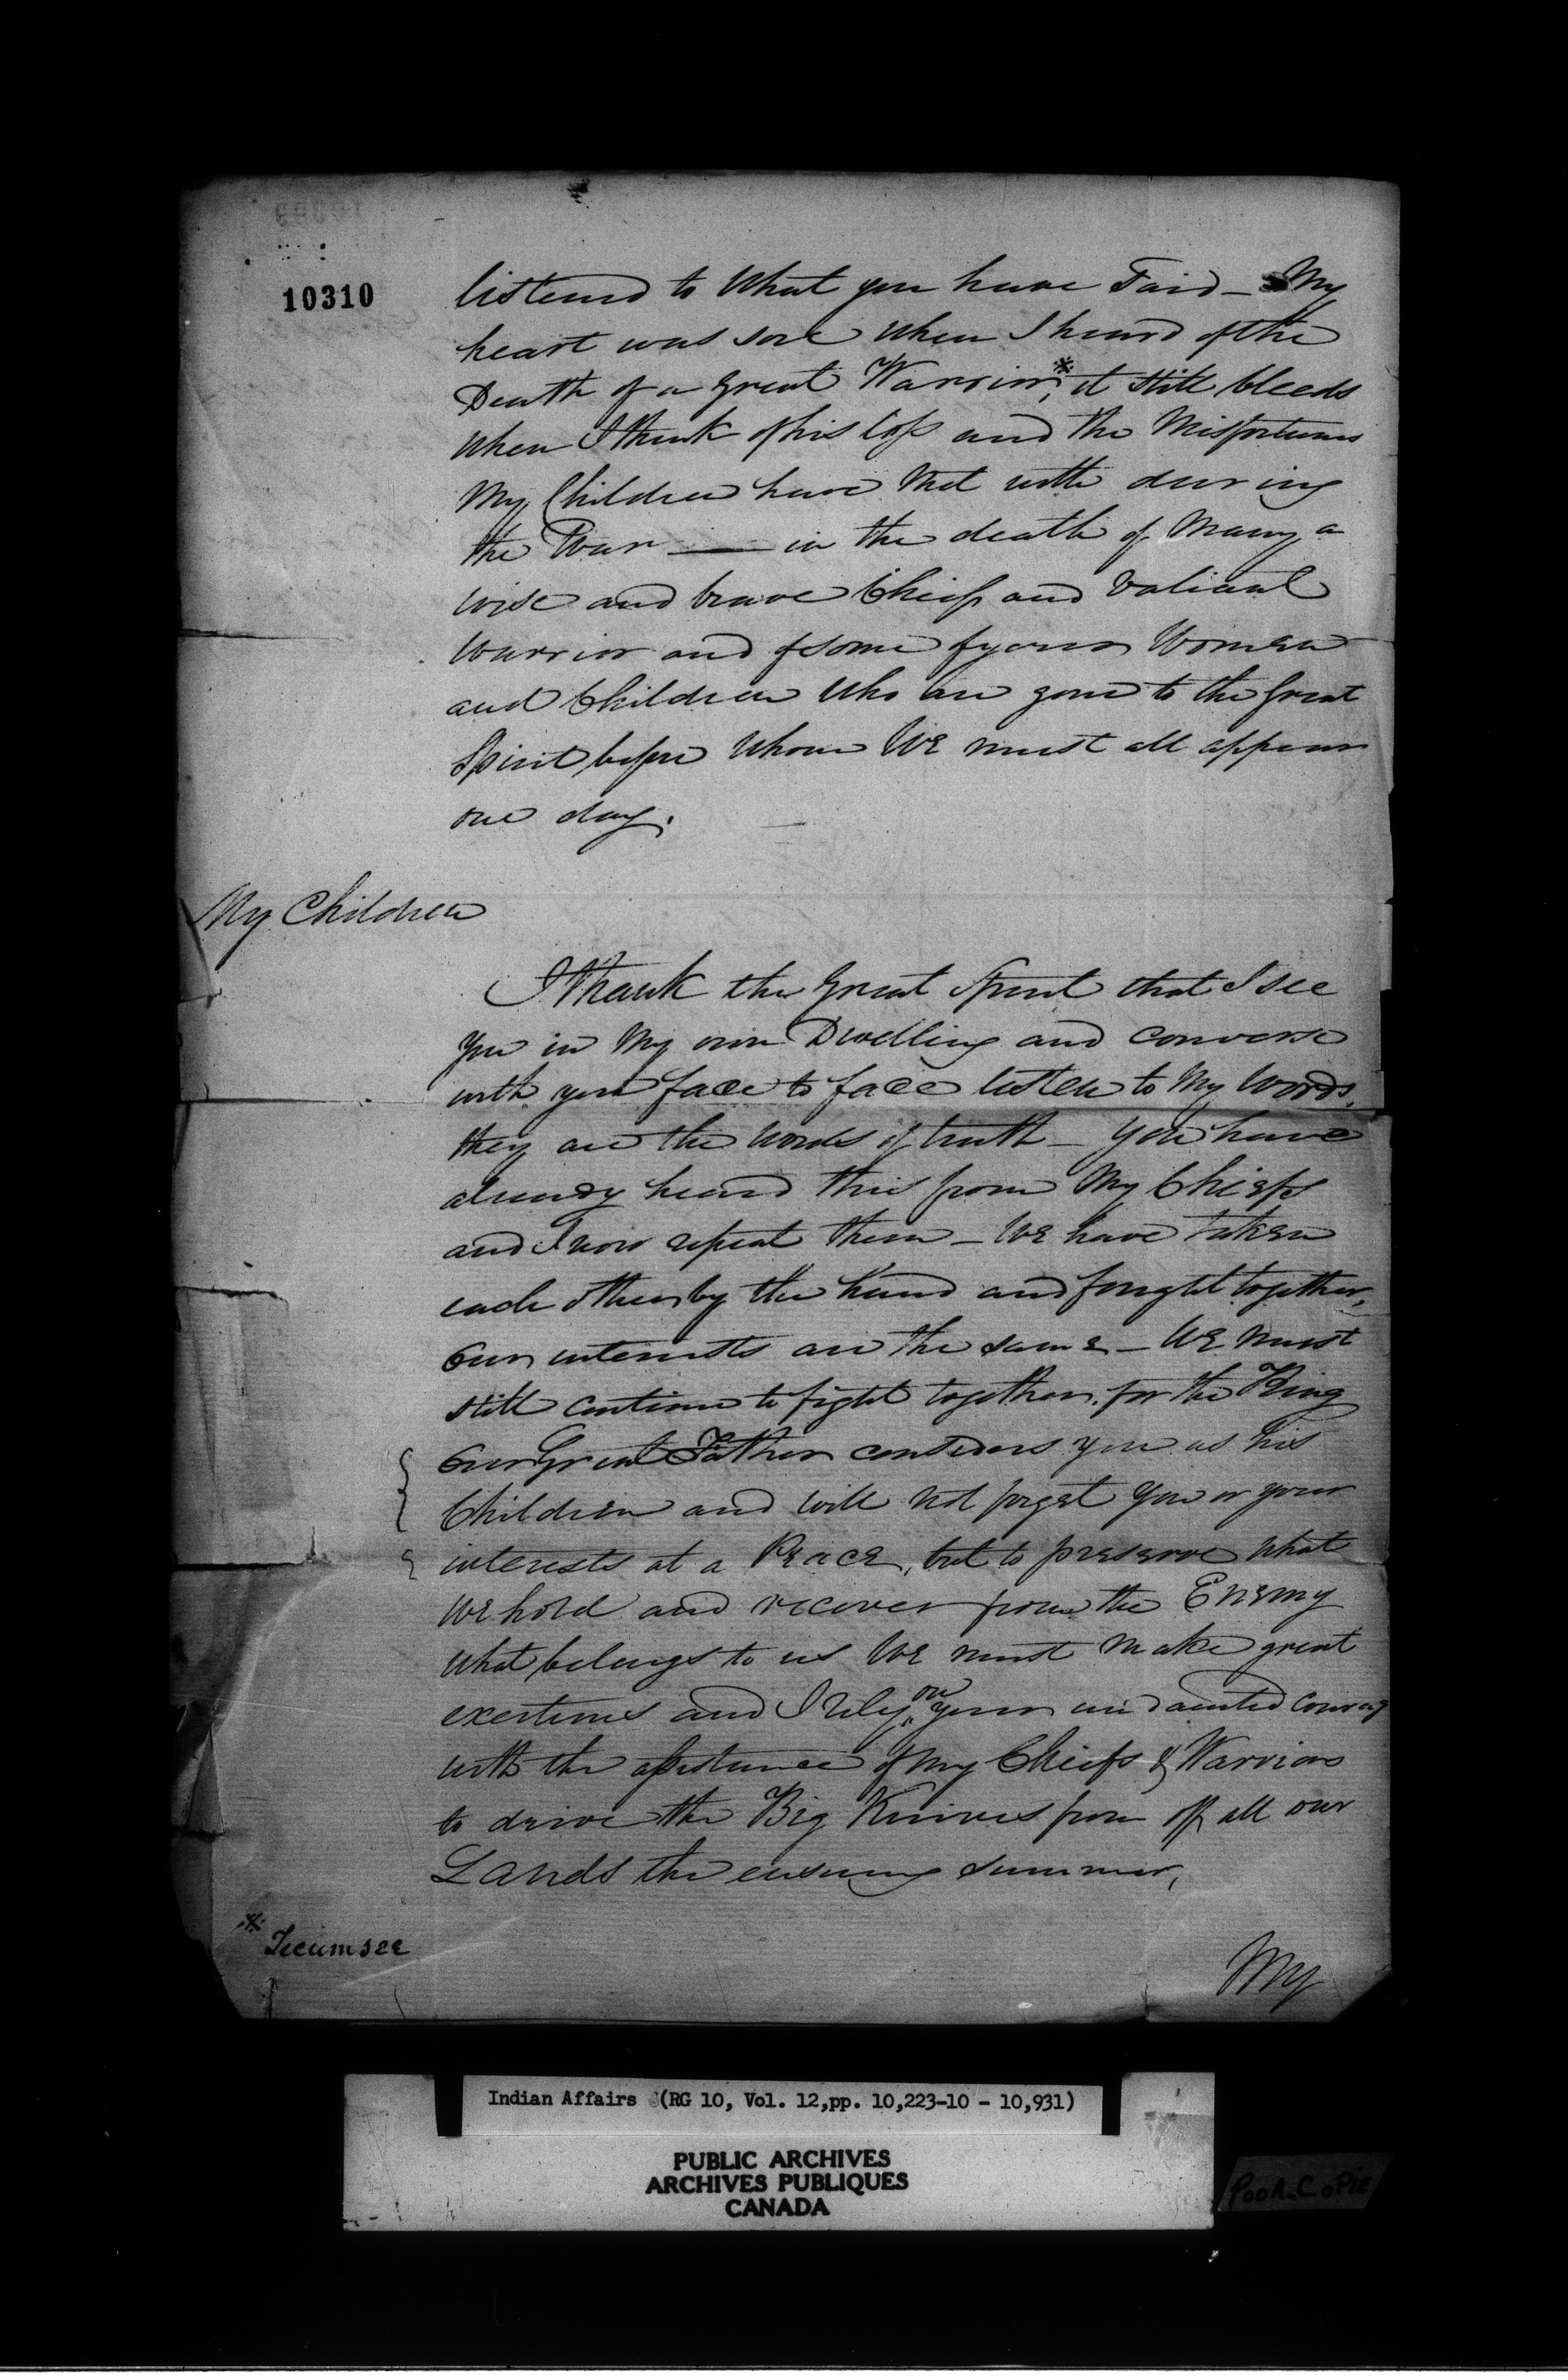 10310
listened to What you have Said — My
heart was sore when I heard of the
Death of a great Warrior,* it still bleeds
when I think of his loss and the Misfortunes
My Children have Met with during
the War —— in the death of Many a
wise and brave Chief and Valiant
Warrior and of some of your Women
and Children Who are gone to the Great
Spirit before Whom We must all appear
one day.
My Children
I thank the Great Spirit that I see
you in My own Dwelling and converse
with you face to face listen to My Words,
they are the words of truth — You have
already heard this from My Chiefs
and I now repeat them — We have taken
each other by the hand and fought together,
Our interests are the same — We must
still continue to fight together for the King
Our Great Father considers you as his
Children and will not forget you or your
interests at a Peace, but to preserve what
We hold and recover from the Enemy
what belongs to us We must Make great
exertions and I rely on your undaunted courag
with the assistance of my Chiefs & Warriors
to drive the Big Knives from off all our
Lands the ensuing summer,
* Tecumsee
My
Indian Affairs (RG 10, Vol. 12,pp. 10,223-10 - 10,931)
PUBLIC ARCHIVES
ARCHIVES PUBLIQUES
CANADA
POOR COPIE